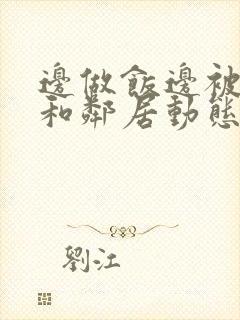 邊做飯邊被
和鄰居動態
劉江